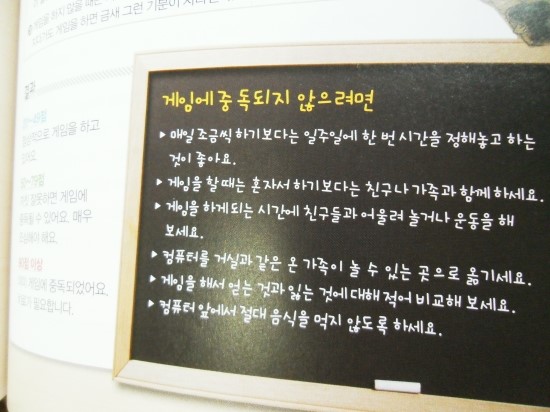 게임을 하지 않을 때는
게임을 하면 금새 그런 기분이 사라
결과
적으로 게임을 하고
있어요.
잘못하면 게임에
수 있어요. 매우
해야 해요.
게임에 중독되었어요.
필요합니다.
게임에 중독되지 않으려면
▶ 매일 조금씩 하기보다는 일주일에 한 번 시간을 정해놓고 하는
것이 좋아요.
▶ 게임을 할 때는 혼자서 하기보다는 친구나 가족과 함께 하세요.
▶ 게임을 하게 되는 시간에 친구들과 어울려 놀거나 운동을 해
보세요.
▶ 컴퓨터를 거실과 같은 온 가족이 놀 수 있는 곳으로 옮기세요.
▶ 게임을 해서 얻는 것과 잃는 것에 대해 적어 비교해 보세요.
▶ 컴퓨터 앞에서 절대 음식을 먹지 않도록 하세요.